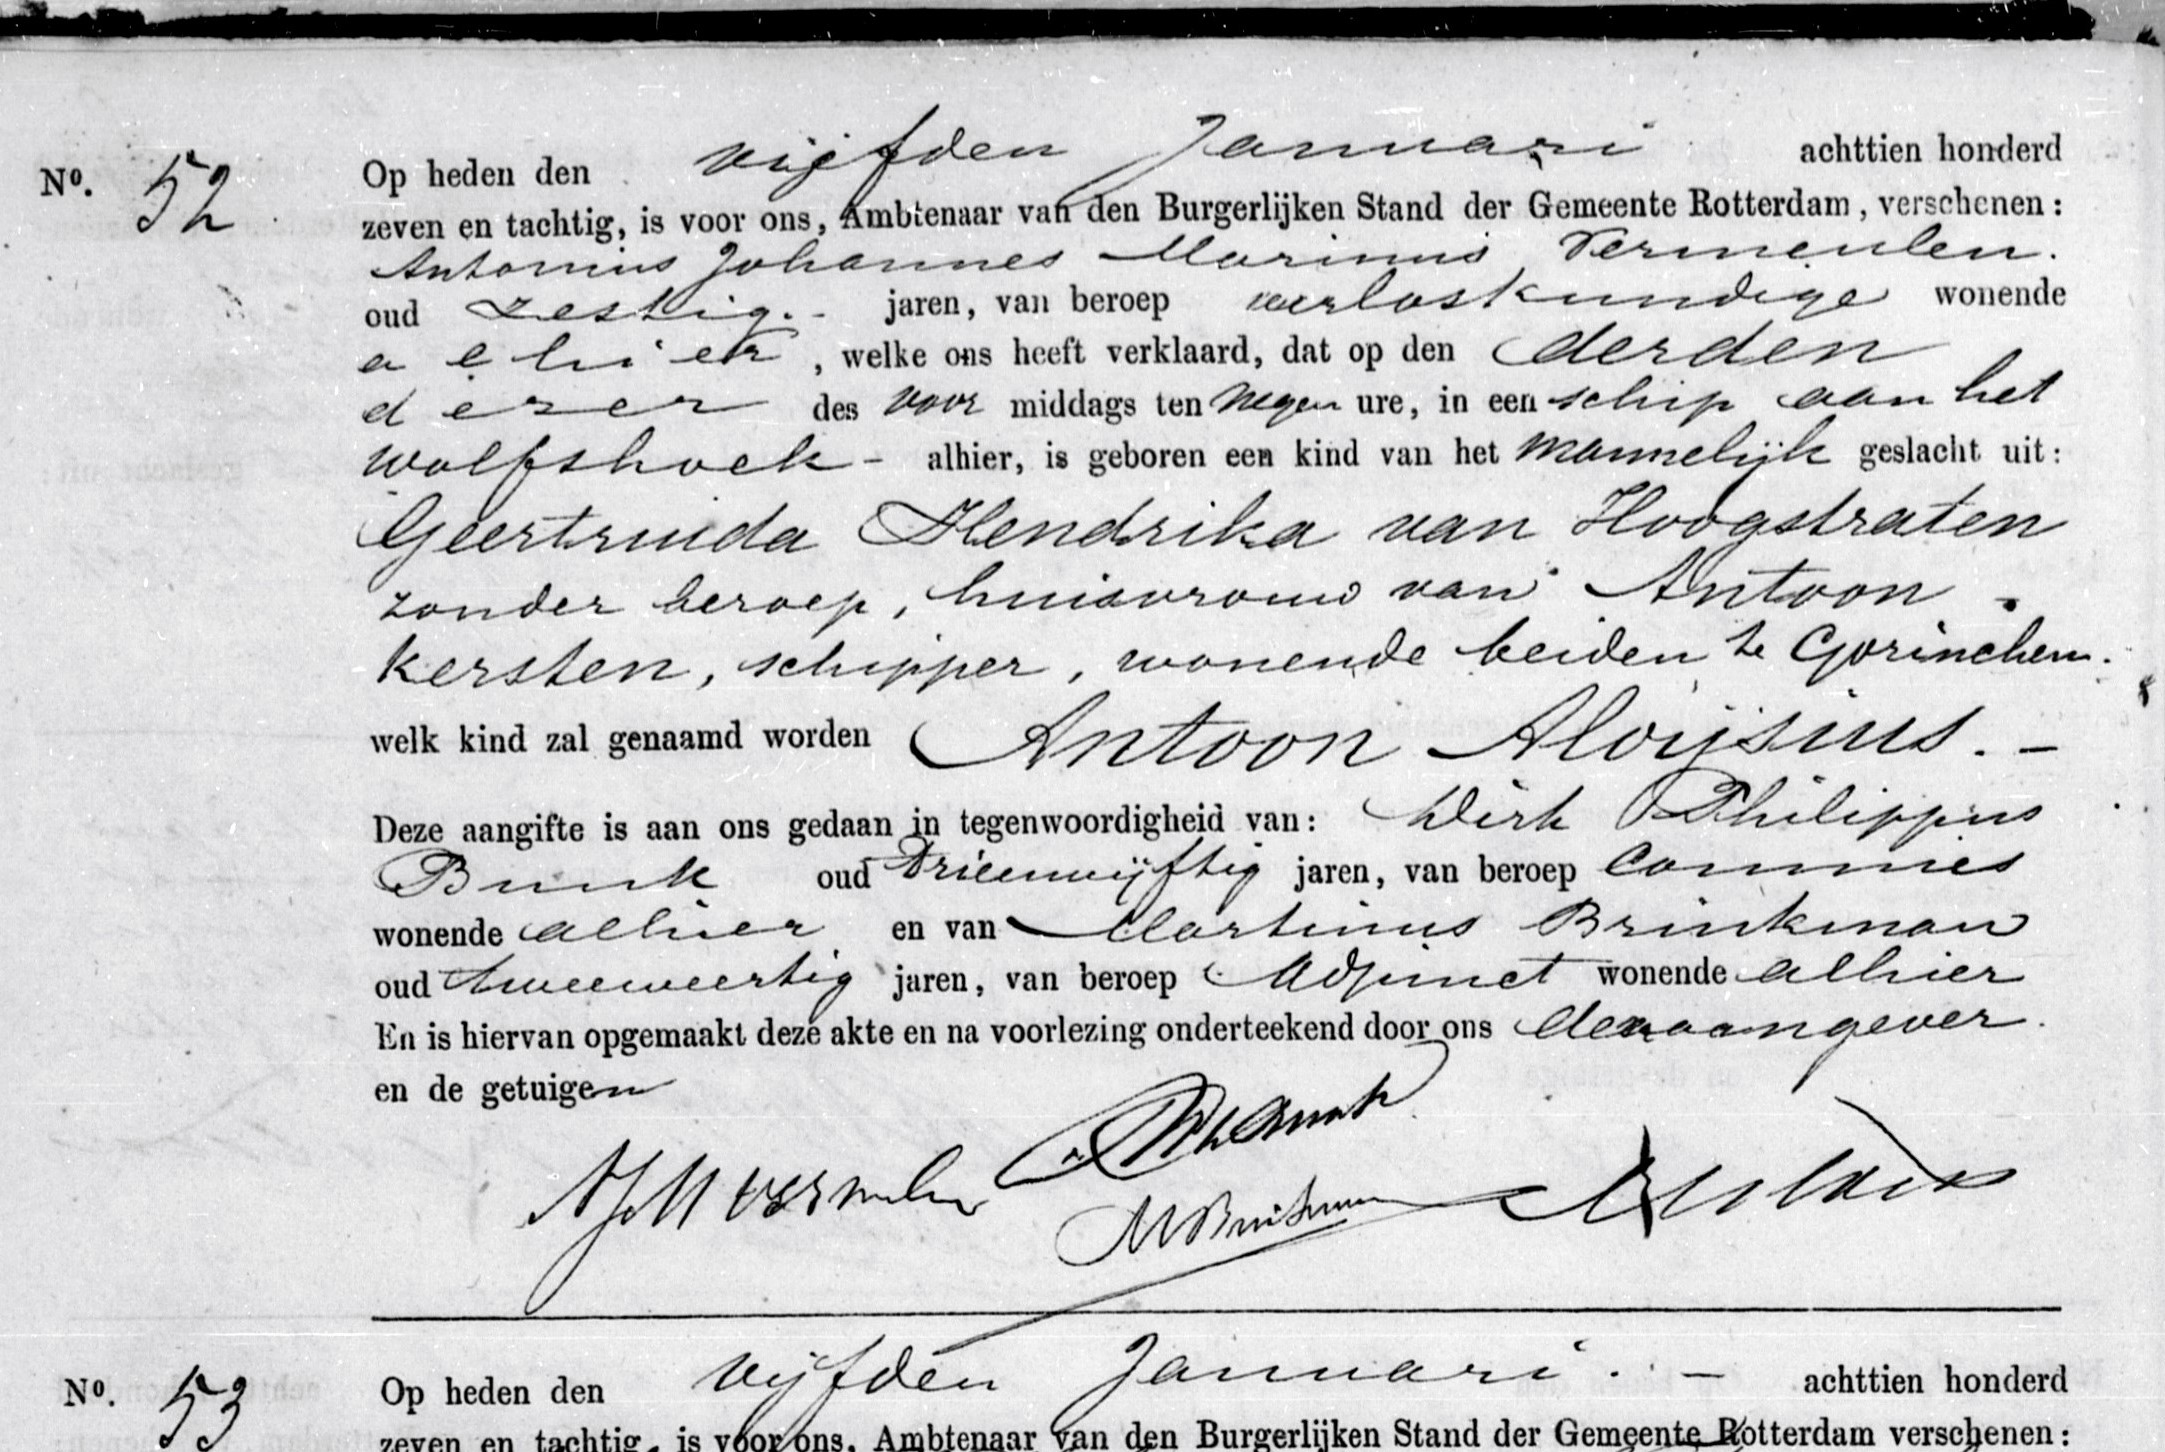 No. 52 Op heden den vijfden Januari achttien honderd
zeven en tachtig, is voor ons, Ambtenaar van den Burgerlijken Stand der Gemeente Rotterdam, verschenen:
Antonius Johannes Marinus Vermeulen.
oud zestig.- jaren, van beroep verloskundige wonende
alhier, welke ons heeft verklaard, dat op den derden
dezer des voor middags ten negen ure, in een schip aan het
wolfshoek - alhier, is geboren een kind van het mannelijk geslacht uit:
Geertruida Hendrika van Hoogstraten
zonder beroep, huisvrouw van Antoon -
Kersten, schipper, wonende beiden te Gorinchem.
welk kind zal genaamd worden Antoon Aloijsius. -
Deze aangifte is aan ons gedaan in tegenwoordigheid van: Dirk Philippus
Bunk oud Drieenvijftig jaren, van beroep Commies
wonende alhier en van Martinus Brinkman
oud tweeenveertig jaren, van beroep Adjunct wonende alhier
En is hiervan opgemaakt deze akte en na voorlezing onderteekend door ons den aangever.
en de getuigen
AJM Vermeulen
MBrinkman
No. 53 Op heden den vijfden Januari. - achttien honderd
zeven en tachtig, is voor ons, Ambtenaar van den Burgerlijken Stand der Gemeente Rotterdam verschenen: